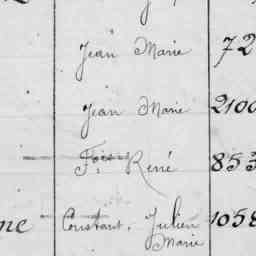 Jean Marie 72
Jean Marie 2100
Fois René 853
ne Constant, Julien 1058
Marie